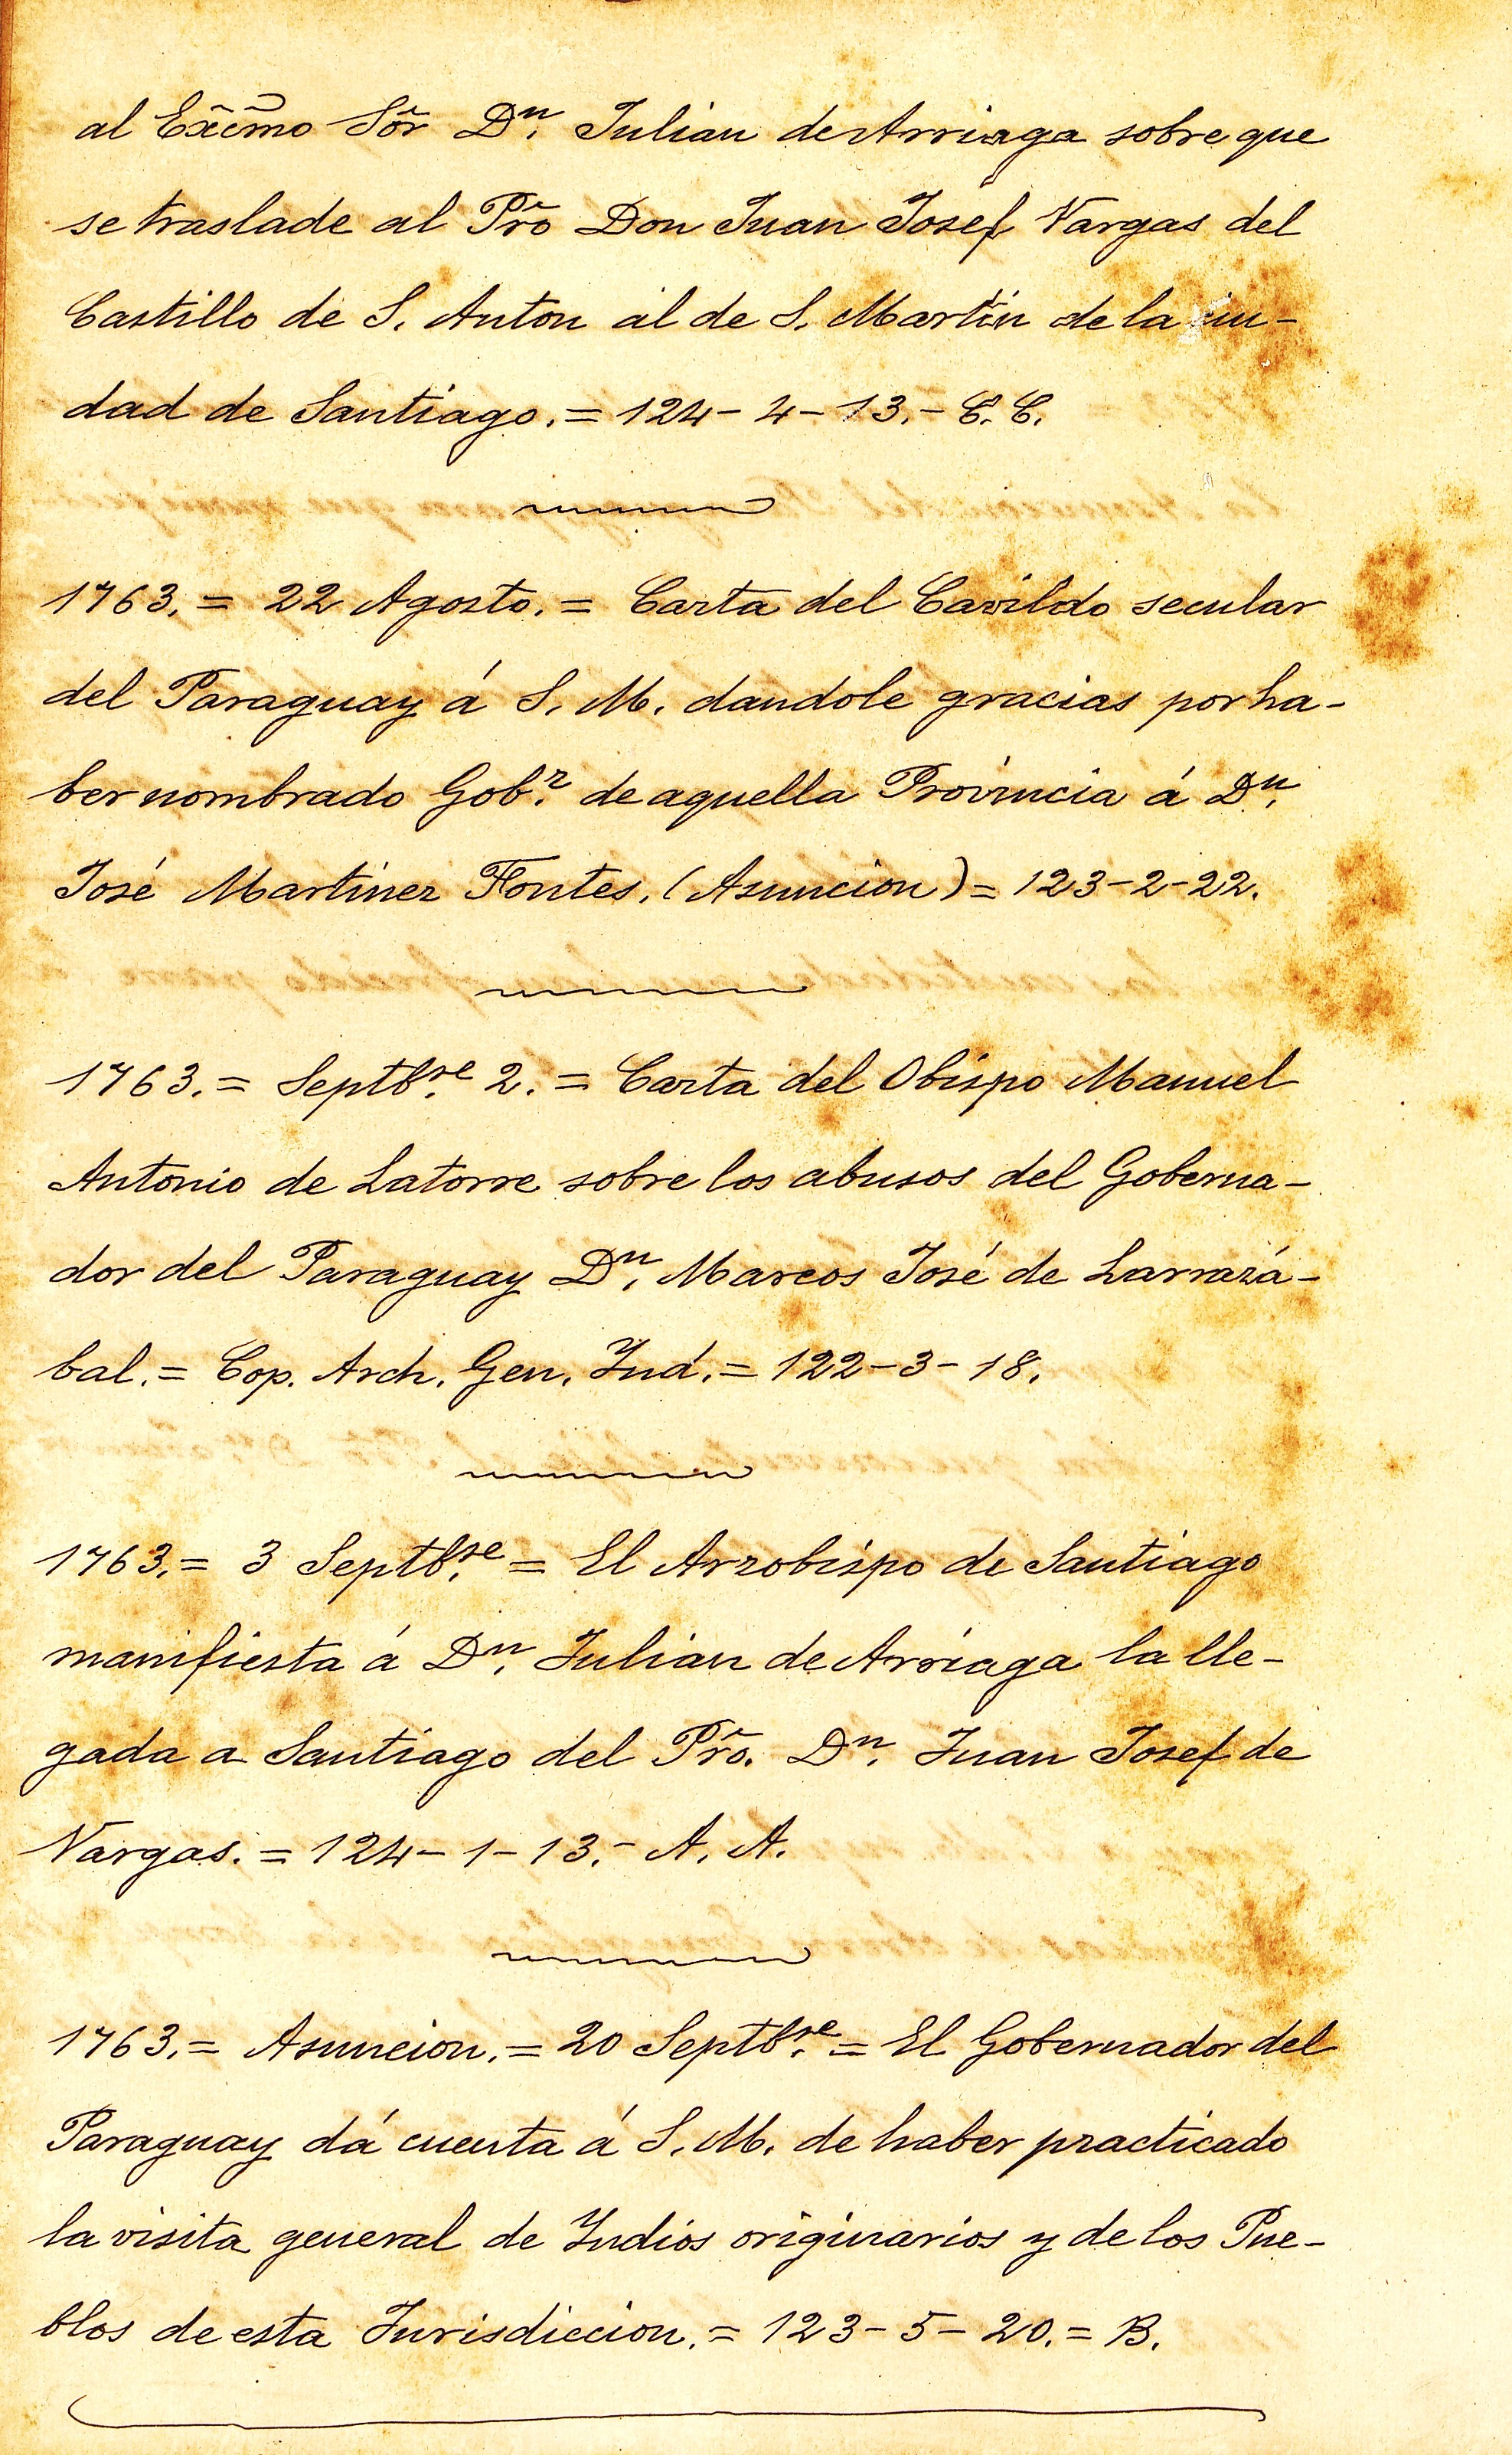 al Exc̃m̃o Sõr Dⁿ. Julian de Arriaga sobre que
se traslade al Pr̃o Don Juan Josef Vargas del
Castillo de S. Anton al de S. Martin de la ciu-
dad de Santiago. = 124 - 4 - 13. - C. C.
1763. = 22 Agosto. = Carta del Cavildo secular
del Paraguay á S. M. dandole gracias por ha-
ber nombrado Gobʳ. de aquella Provincia á Dⁿ.
José Martinez Fontes. (Asuncion) = 123 - 2 - 22.
1763. = Septbʳᵉ. 2. = Carta del Obispo Manuel
Antonio de Latorre sobre los abusos del Goberna-
dor del Paraguay Dⁿ. Marcos José de Larrazá-
bal. = Cop. Arch. Gen. Ind. = 122 - 3 - 18.
1763. = 3 Septbʳᵉ. = El Arzobispo de Santiago
manifiesta á Dⁿ. Julian de Arriaga la lle-
gada a Santiago del Pr̃o. Dⁿ. Juan Josef de
Vargas. = 124 - 1 - 13. - A. A.
1763. = Asuncion. = 20 Septbʳᵉ. = El Gobernador del
Paraguay dá cuenta á S. M. de haber practicado
la visita general de Indios originarios y de los Pue-
blos de esta Jurisdiccion. = 123 - 5 - 20. = B.